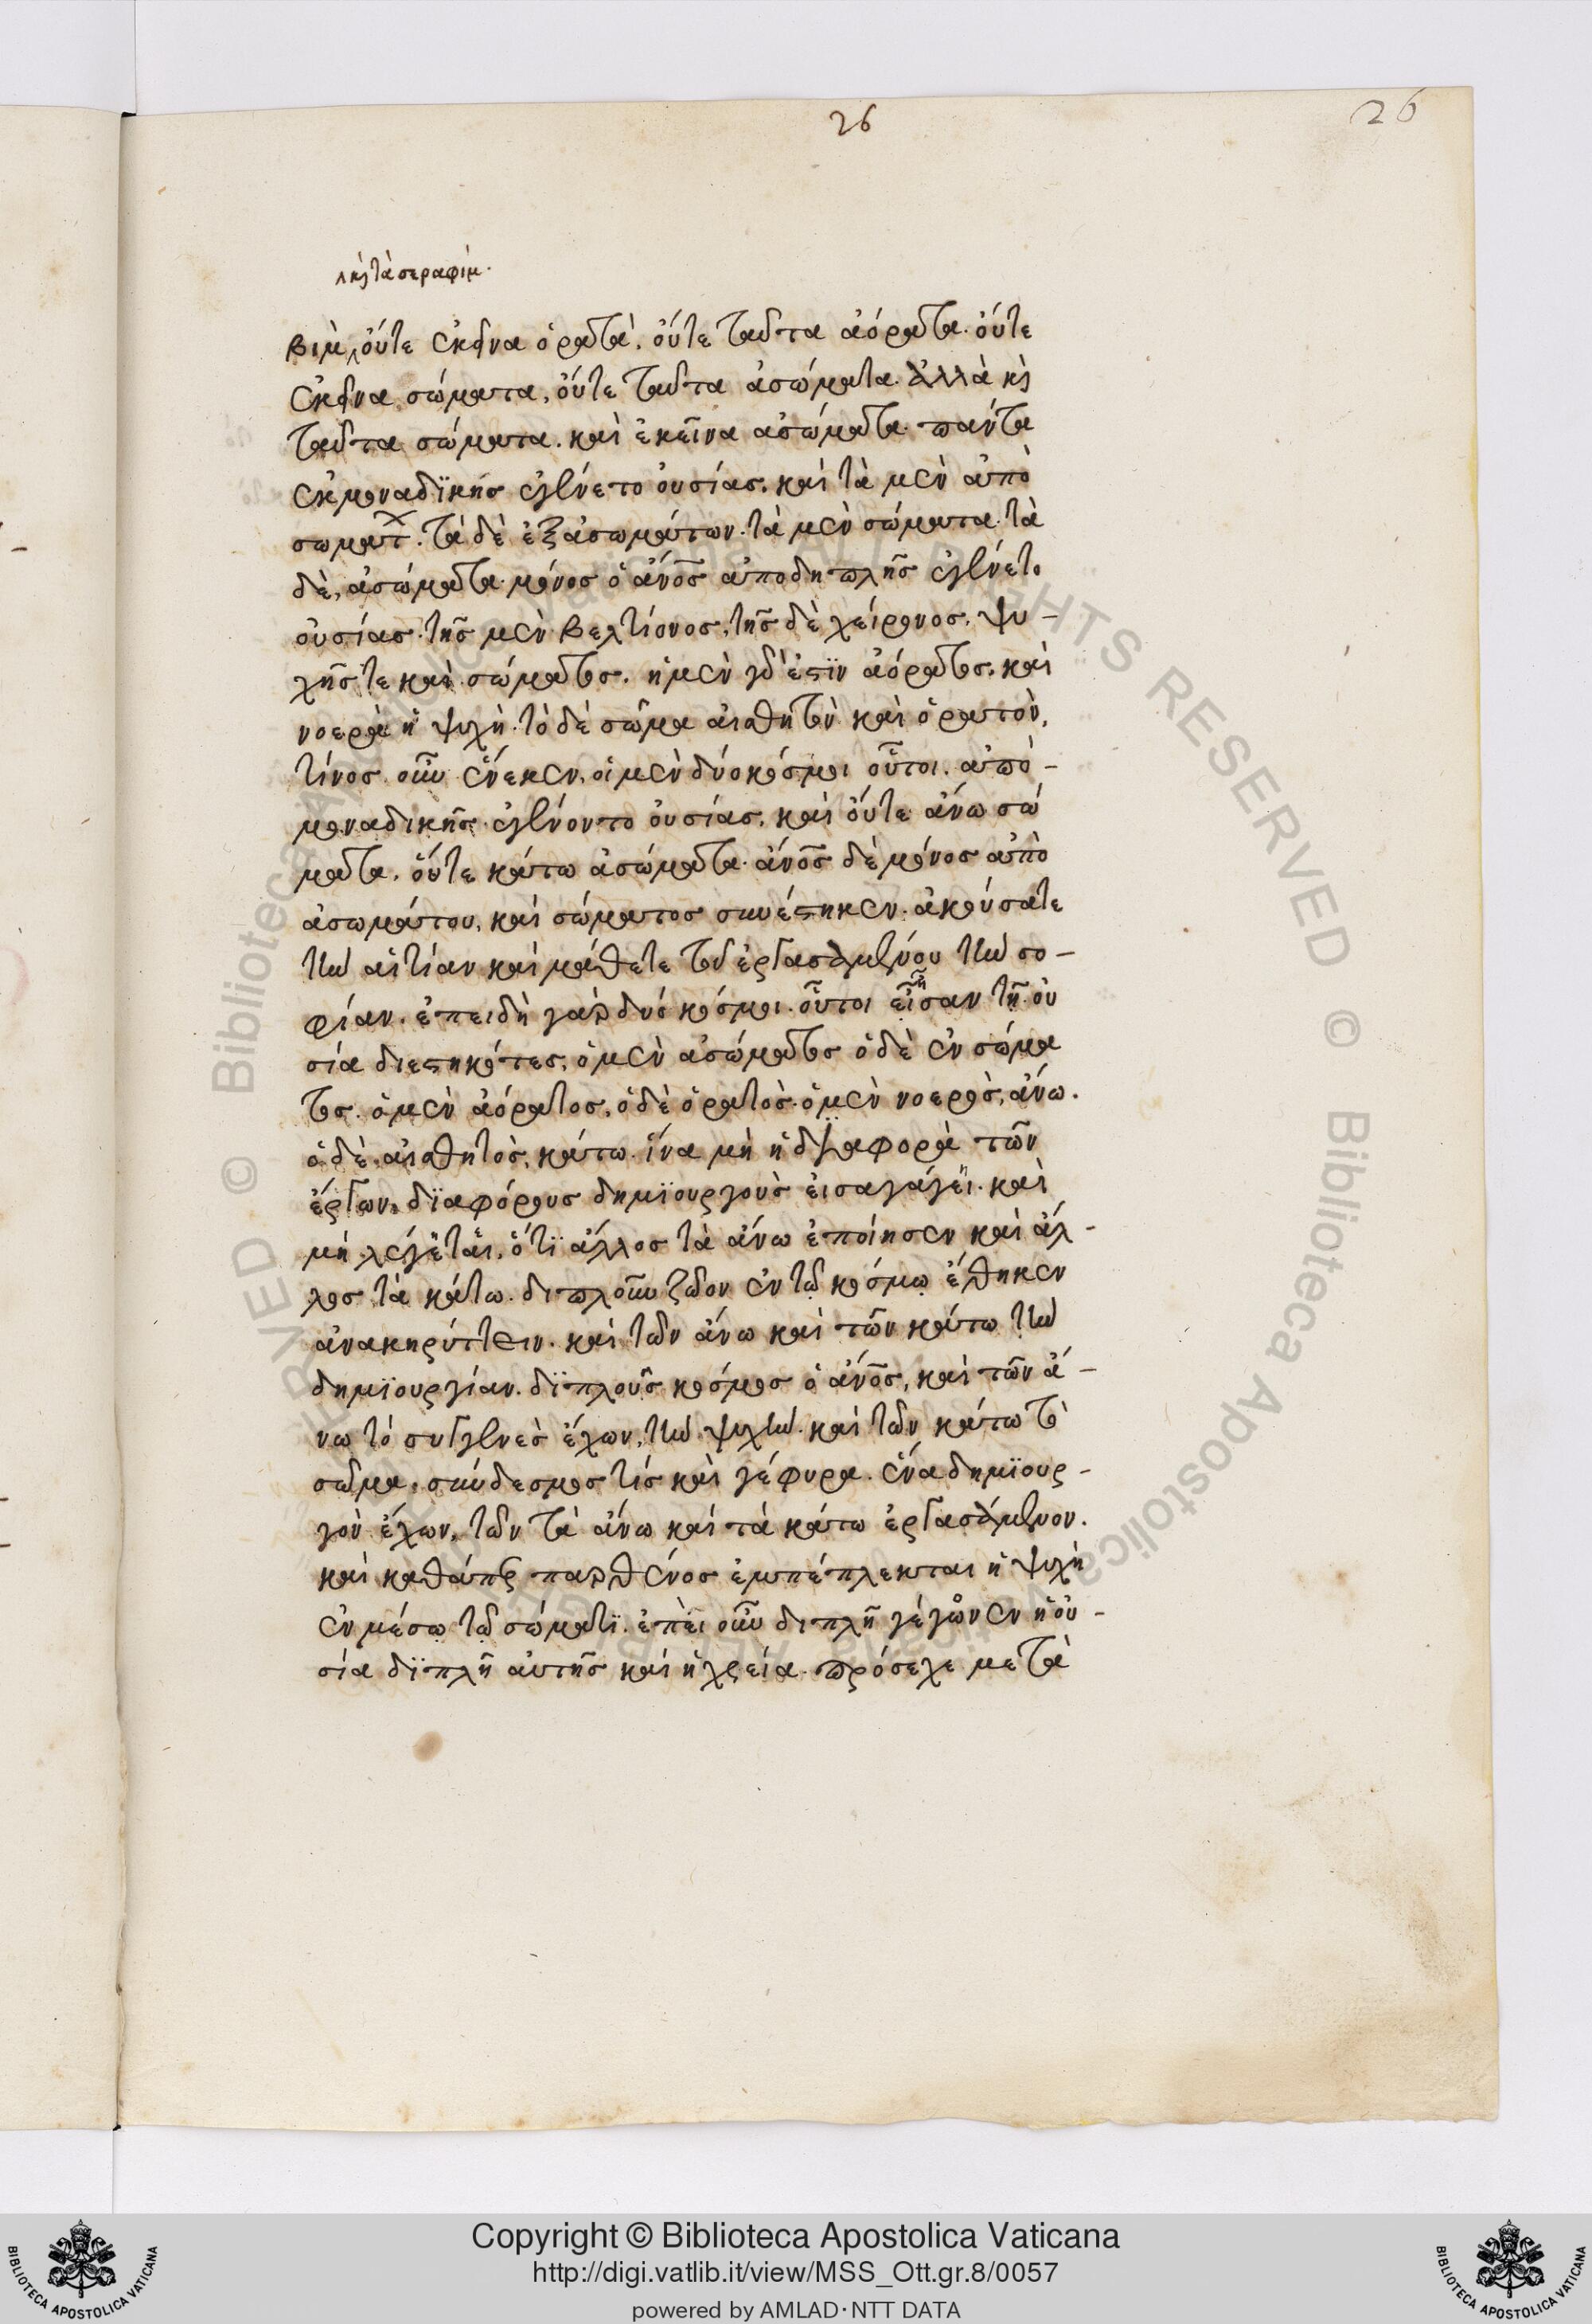 26
26
κ(αὶ) τὰ σεραφίμ.
βιμ οὔτε ἐκεῖνα ὁρατὰ, οὔτε ταῦτα ἀόρατα. οὔτε
ἐκεῖνα σώματα, οὔτε ταῦτα ἀσώματα. ἀλλὰ κ(αὶ)
ταῦτα σώματα. καὶ ἐκεῖνα ἀσώματα. πάντα
ἐκ μοναδϊκῆς ἐγένετο οὐσίας. καὶ τὰ μὲν ἀπὸ
σωμάτ. τὰ δὲ ἐξ ἀσωμάτων. τὰ μὲν σώματα. τὰ
δὲ, ἀσώματα. μόνος ὁ ἄνος ἀπὸ διπλῆς ἐγένετο
οὐσίας. τῆς μὲν βελτίονος, τῆς δὲ χείρονος. ψυ-
χῆς τε καὶ σώματος. ἡ μὲν γὰρ ἐστὶν ἀόρατος. καὶ
νοερὰ ἡ ψυχὴ. τὸ δὲ σῶμα αἰσθητὸν καὶ ὁρατὸν,
τίνος οὖν ἕνεκεν, οἱ μὲν δύο κόσμοι οὗτοι. ἀπὸ-
μοναδικῆς ἐγένοντο οὐσίας. καὶ οὔτε ἄνω σώ
ματα, οὔτε κάτω ἀσώματα. ἄνος δὲ μόνος ἀπὸ
ἀσωμάτου, καὶ σώματος συνέστηκεν. ἀκούσατε
τὴν αἰτίαν καὶ μάθετε τοῦ ἐργασαμένου τὴν σο-
φίαν. ἐπειδὴ γὰρ δύο κόσμοι οὗτοι εἶσαν τῆ οὐ
σία διεστηκότες, ὁ μὲν ἀσώματος ὁ δὲ ἐν σώμα
τος. ὁ μὲν ἀόρατος, ὁ δὲ ὁρατὸς. ὁ μὲν νοερὸς, ἄνω.
ὁ δὲ, αἰσθητὸς, κάτω. ἵνα μὴ ἡ δϊαφορὰ τῶν
ἔργων, δϊαφόρους δημϊουργοὺς εἰσαγάγει. καὶ
μὴ λέγεται, ὅτϊ ἄλλος τὰ ἄνω ἐποίησεν καὶ ἄλ-
λος τὰ κάτω. διπλοῦν ζῶον ἐν τῶ κόσμω ἔθηκεν
ἀνακηρύττειν. καὶ τῶν ἄνω καὶ τῶν κάτω τὴν
δημϊουργίαν. δϊπλοῦς κόσμος ὁ ἄνος, καὶ τῶν ἄ-
νω τὸ συγγενὲς ἔχων, τὴν ψυχὴν. καὶ τῶν κάτω τὸ
σῶμα, σύνδεσμος τίς καὶ γέφυρα. ἕνα δημϊουρ-
γὸν ἔχων, τῶν τὰ ἄνω καὶ τὰ κάτω ἐργασάμενον.
καὶ καθάπερ παρθένος ἐμπέπλεκται ἡ ψυχὴ
ἐν μέσω τῶ σώματϊ. ἐπεὶ οὖν διπλῆ γέγονεν ἡ οὐ-
σία δϊπλῆ αὐτῆς καὶ ἡ χρεία. πρόσεχε μετὰ
Copyright © Biblioteca Apostolica Vaticana
http://digi.vatlib.it/view/MSS_Ott.gr.8/0057
powered by AMLAD·NTT DATA